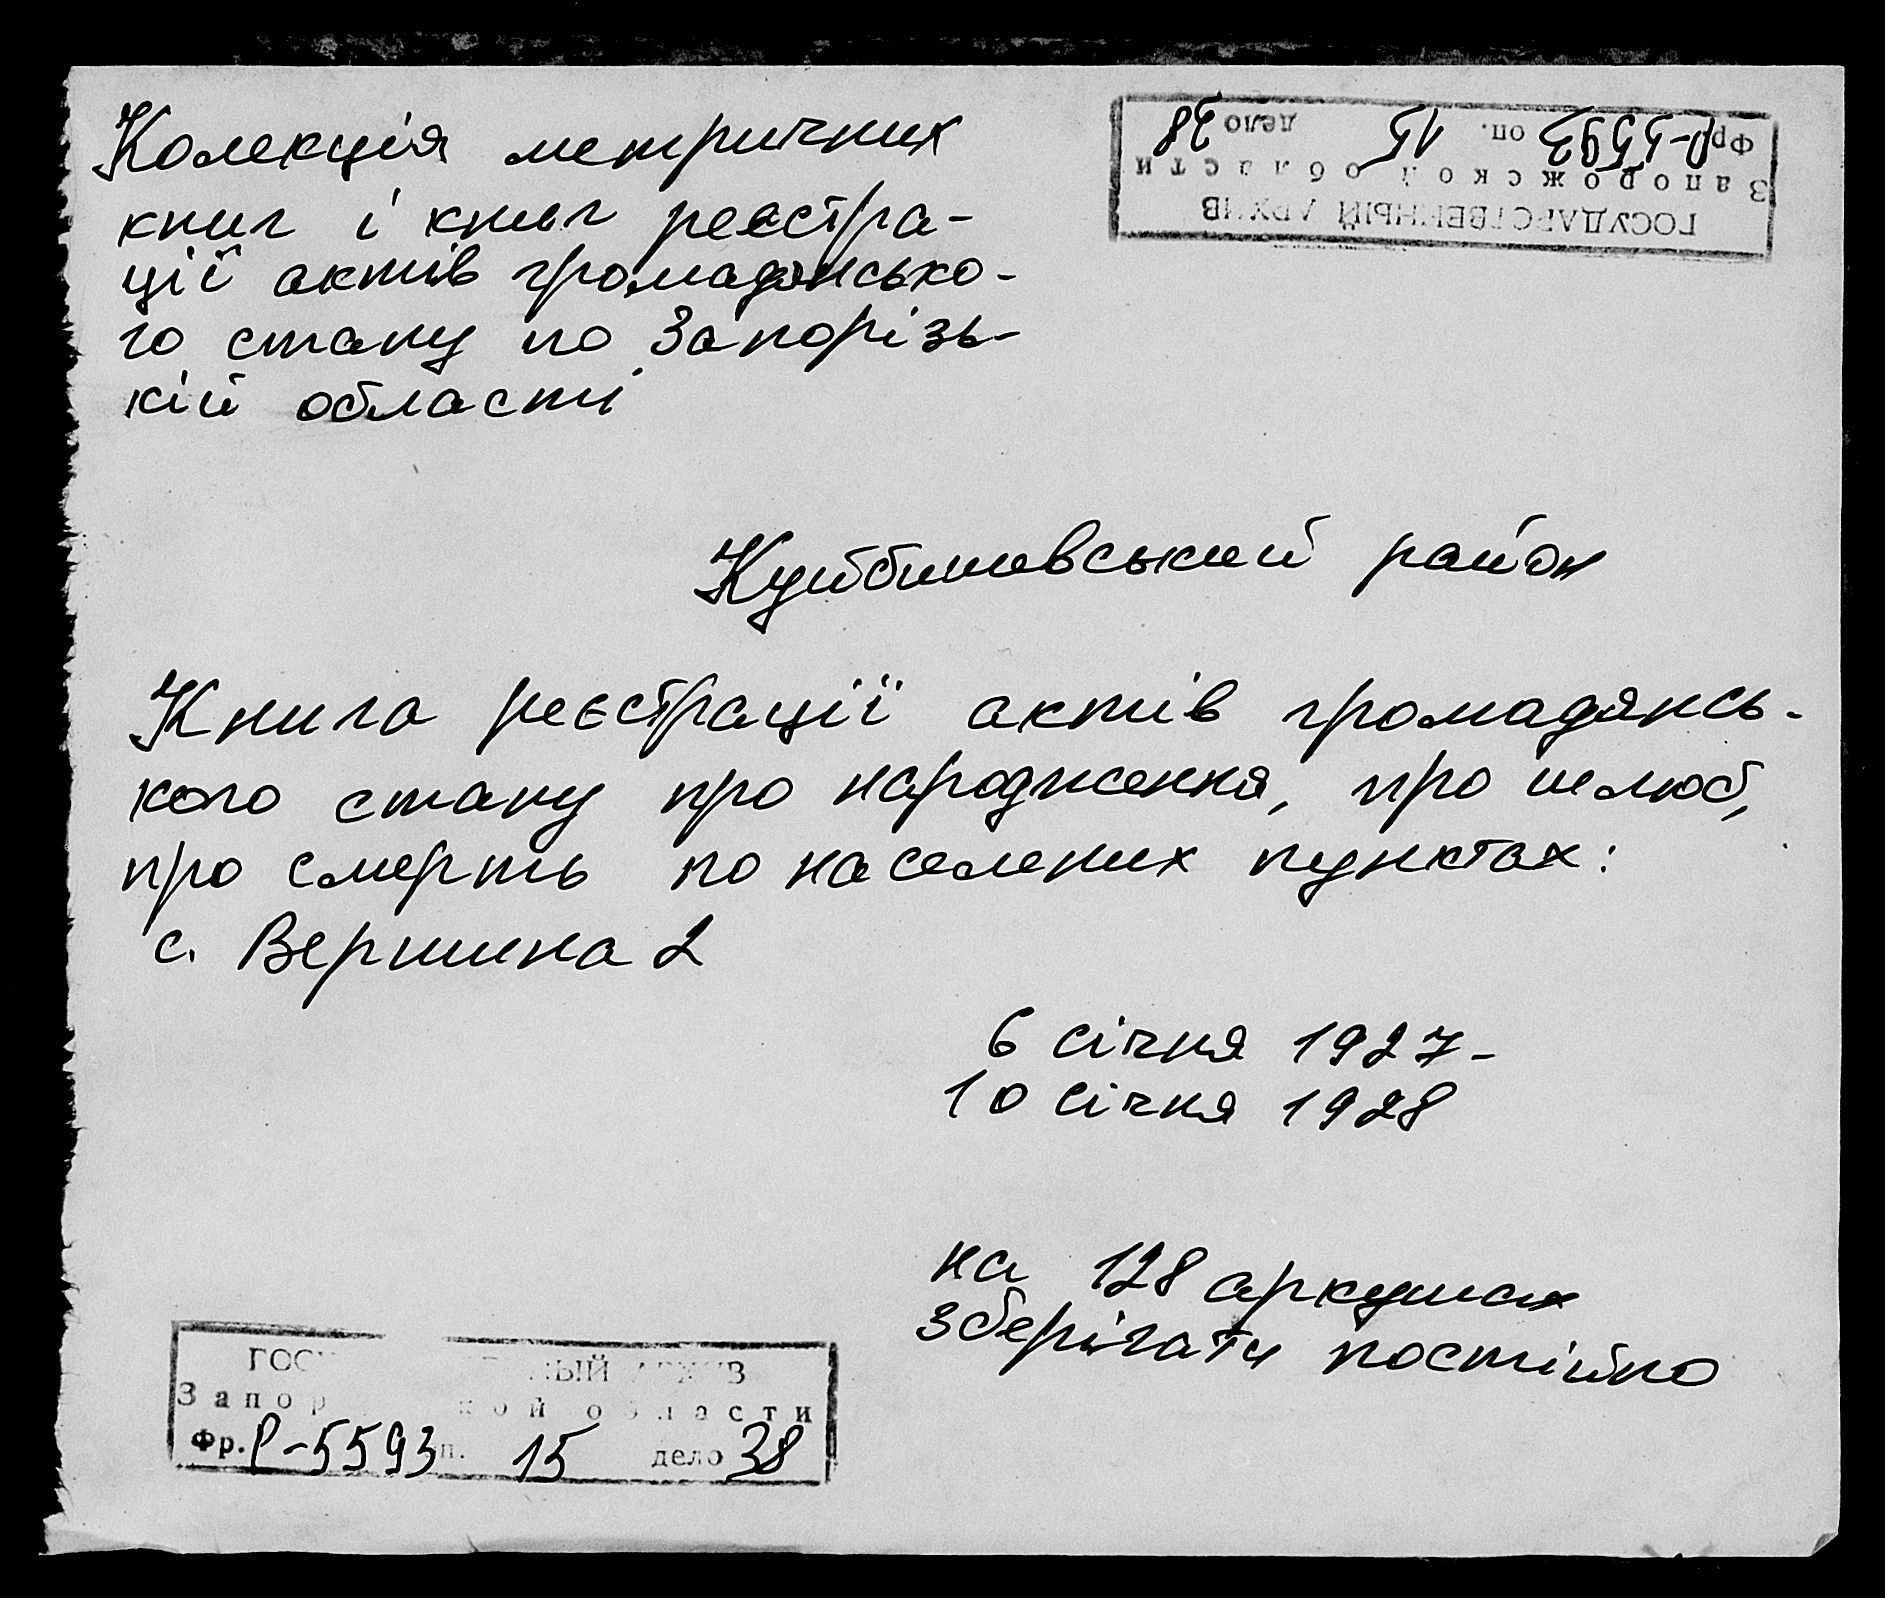 Колекція метричних
книг і книг реєстра-
ції актів громадянсько-
го стану по Запорізь-
кій області
ГОСУДАРСТВЕННЫЙ АРХИВ
Запорожской области
Фр. Р-5593 оп. 15 дело 38
Куйбишевський район
Книга реєстрації актів громадянсь-
кого стану про народження, про шлюб,
про смерть по населених пунктах:
с. Вершина 2
6 січня 1927-
10 січня 1928
на 128 аркушах
зберігати постійно
ГОСУДАРСТВЕННЫЙ АРХИВ
Запорожской области
Фр. Р-5593 оп. 15 дело 38